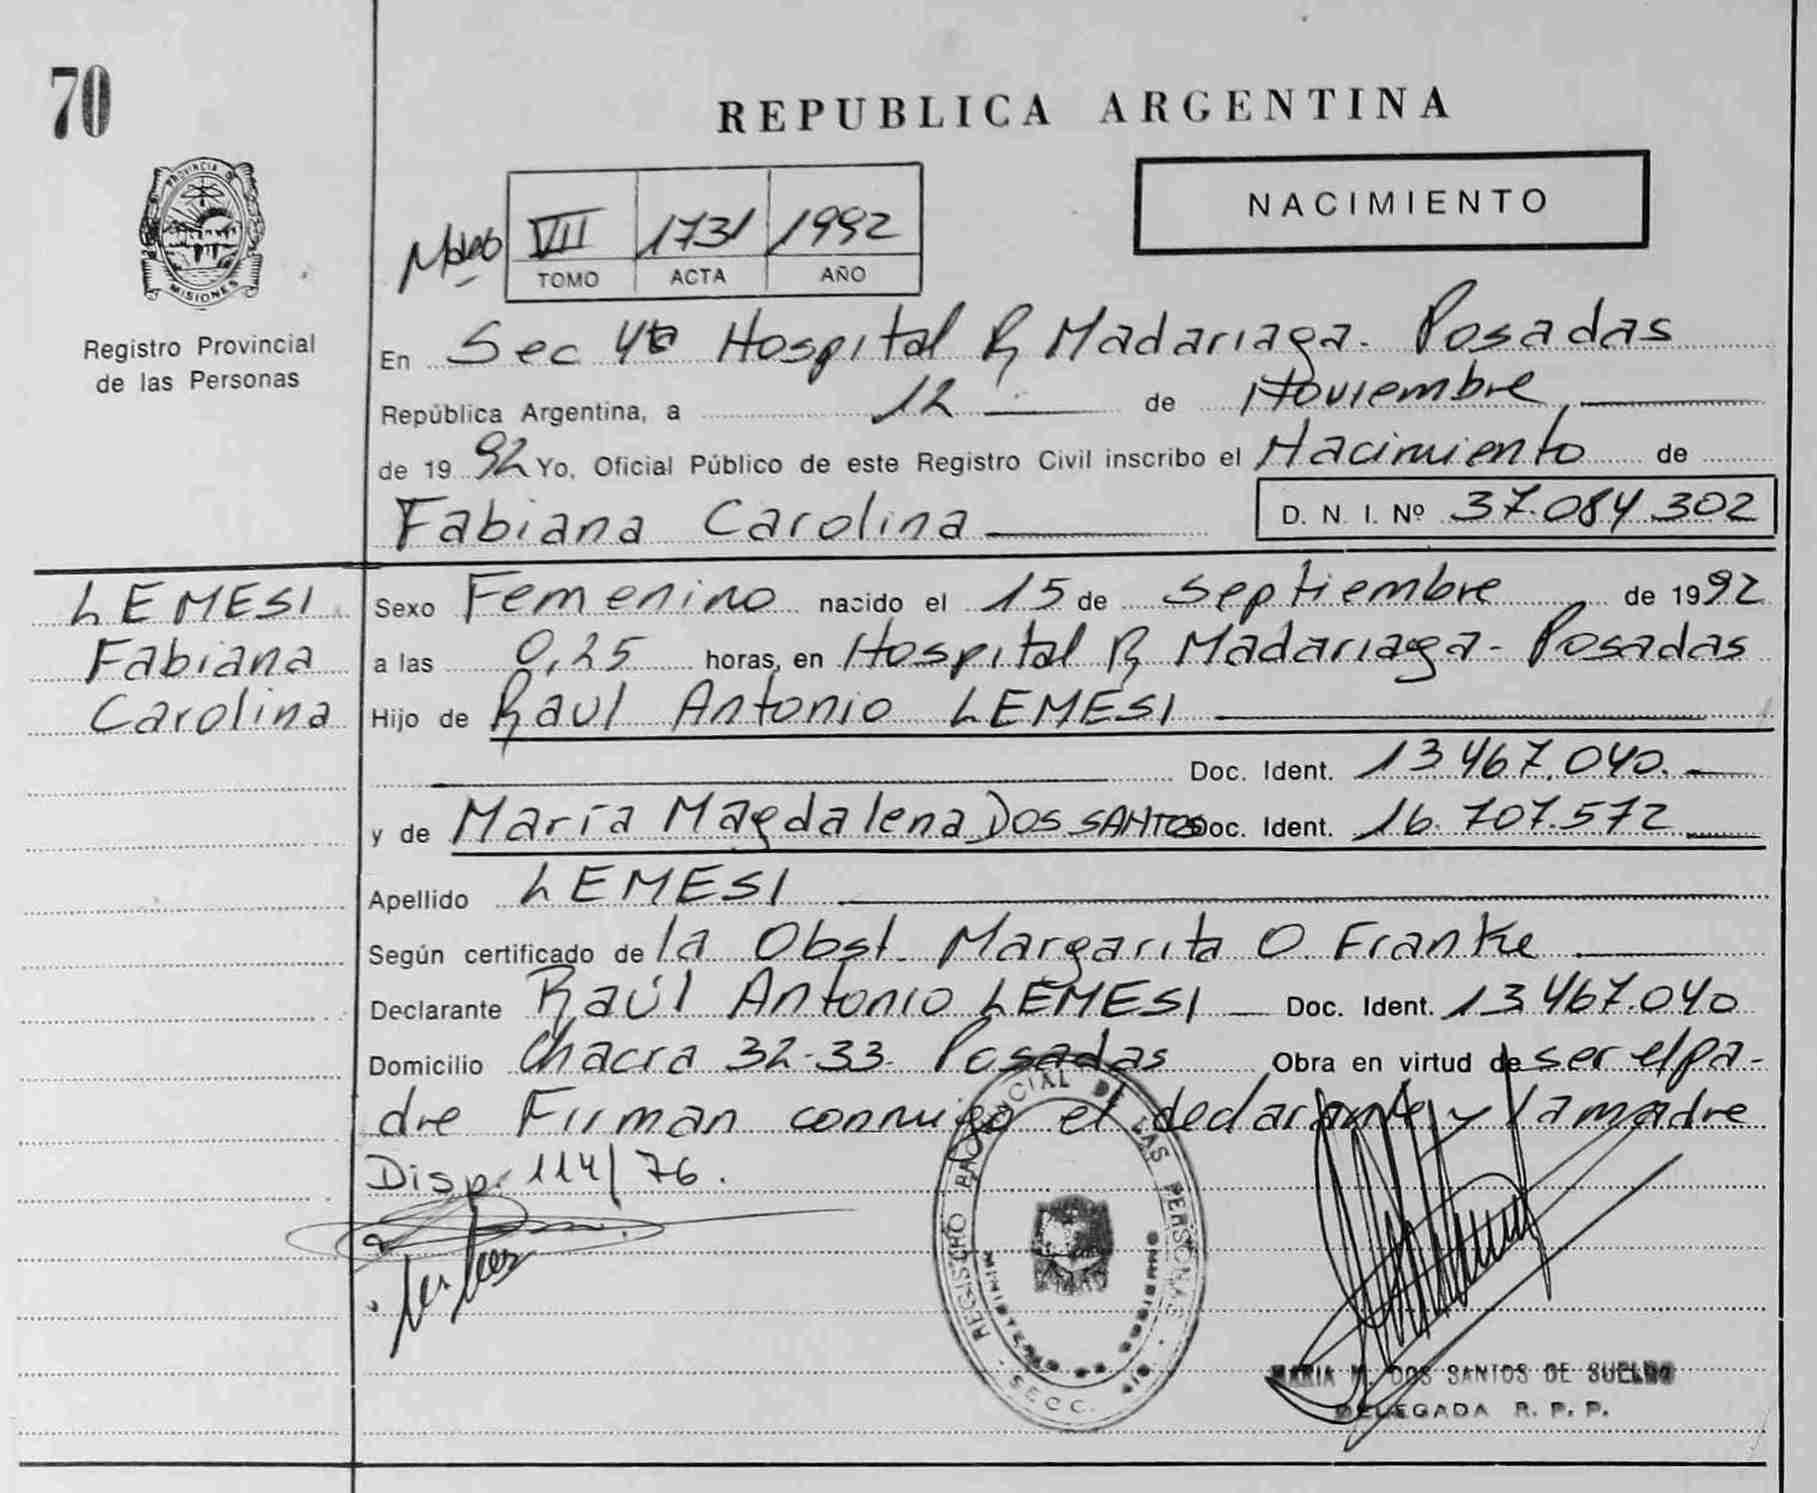 70
REPUBLICA ARGENTINA
NACIMIENTO
VII 1731 1992
TOMO ACTA AÑO
PROVINCIA DE MISIONES
Registro Provincial
de las Personas
En Sec 4ta Hospital R Madariaga. Posadas
República Argentina, a 12 de Noviembre
de 1992 Yo, Oficial Público de este Registro Civil inscribo el Nacimiento de
Fabiana Carolina D. N. I. Nº 37.084.302
LEMESI
Fabiana
Carolina
Sexo Femenino nacido el 15 de septiembre de 1992
a las 0,25 horas, en Hospital R Madariaga - Posadas
Hijo de Raul Antonio LEMESI
Doc. Ident. 13.467.040.
y de María Magdalena DOS SANTOS Doc. Ident. 16.707.572
Apellido LEMESI
Según certificado de la Obst. Margarita O. Franke
Declarante Raúl Antonio LEMESI Doc. Ident. 13.467.040
Domicilio Chacra 32-33. Posadas Obra en virtud de ser el pa-
dre Firman conmigo el declarante y la madre
Disp. 114/76.
REGISTRO PROVINCIAL DE LAS PERSONAS
MINISTERIO DE GOBIERNO
SECC.
MARIA M. DOS SANTOS DE SUELDO
DELEGADA R. P. P.